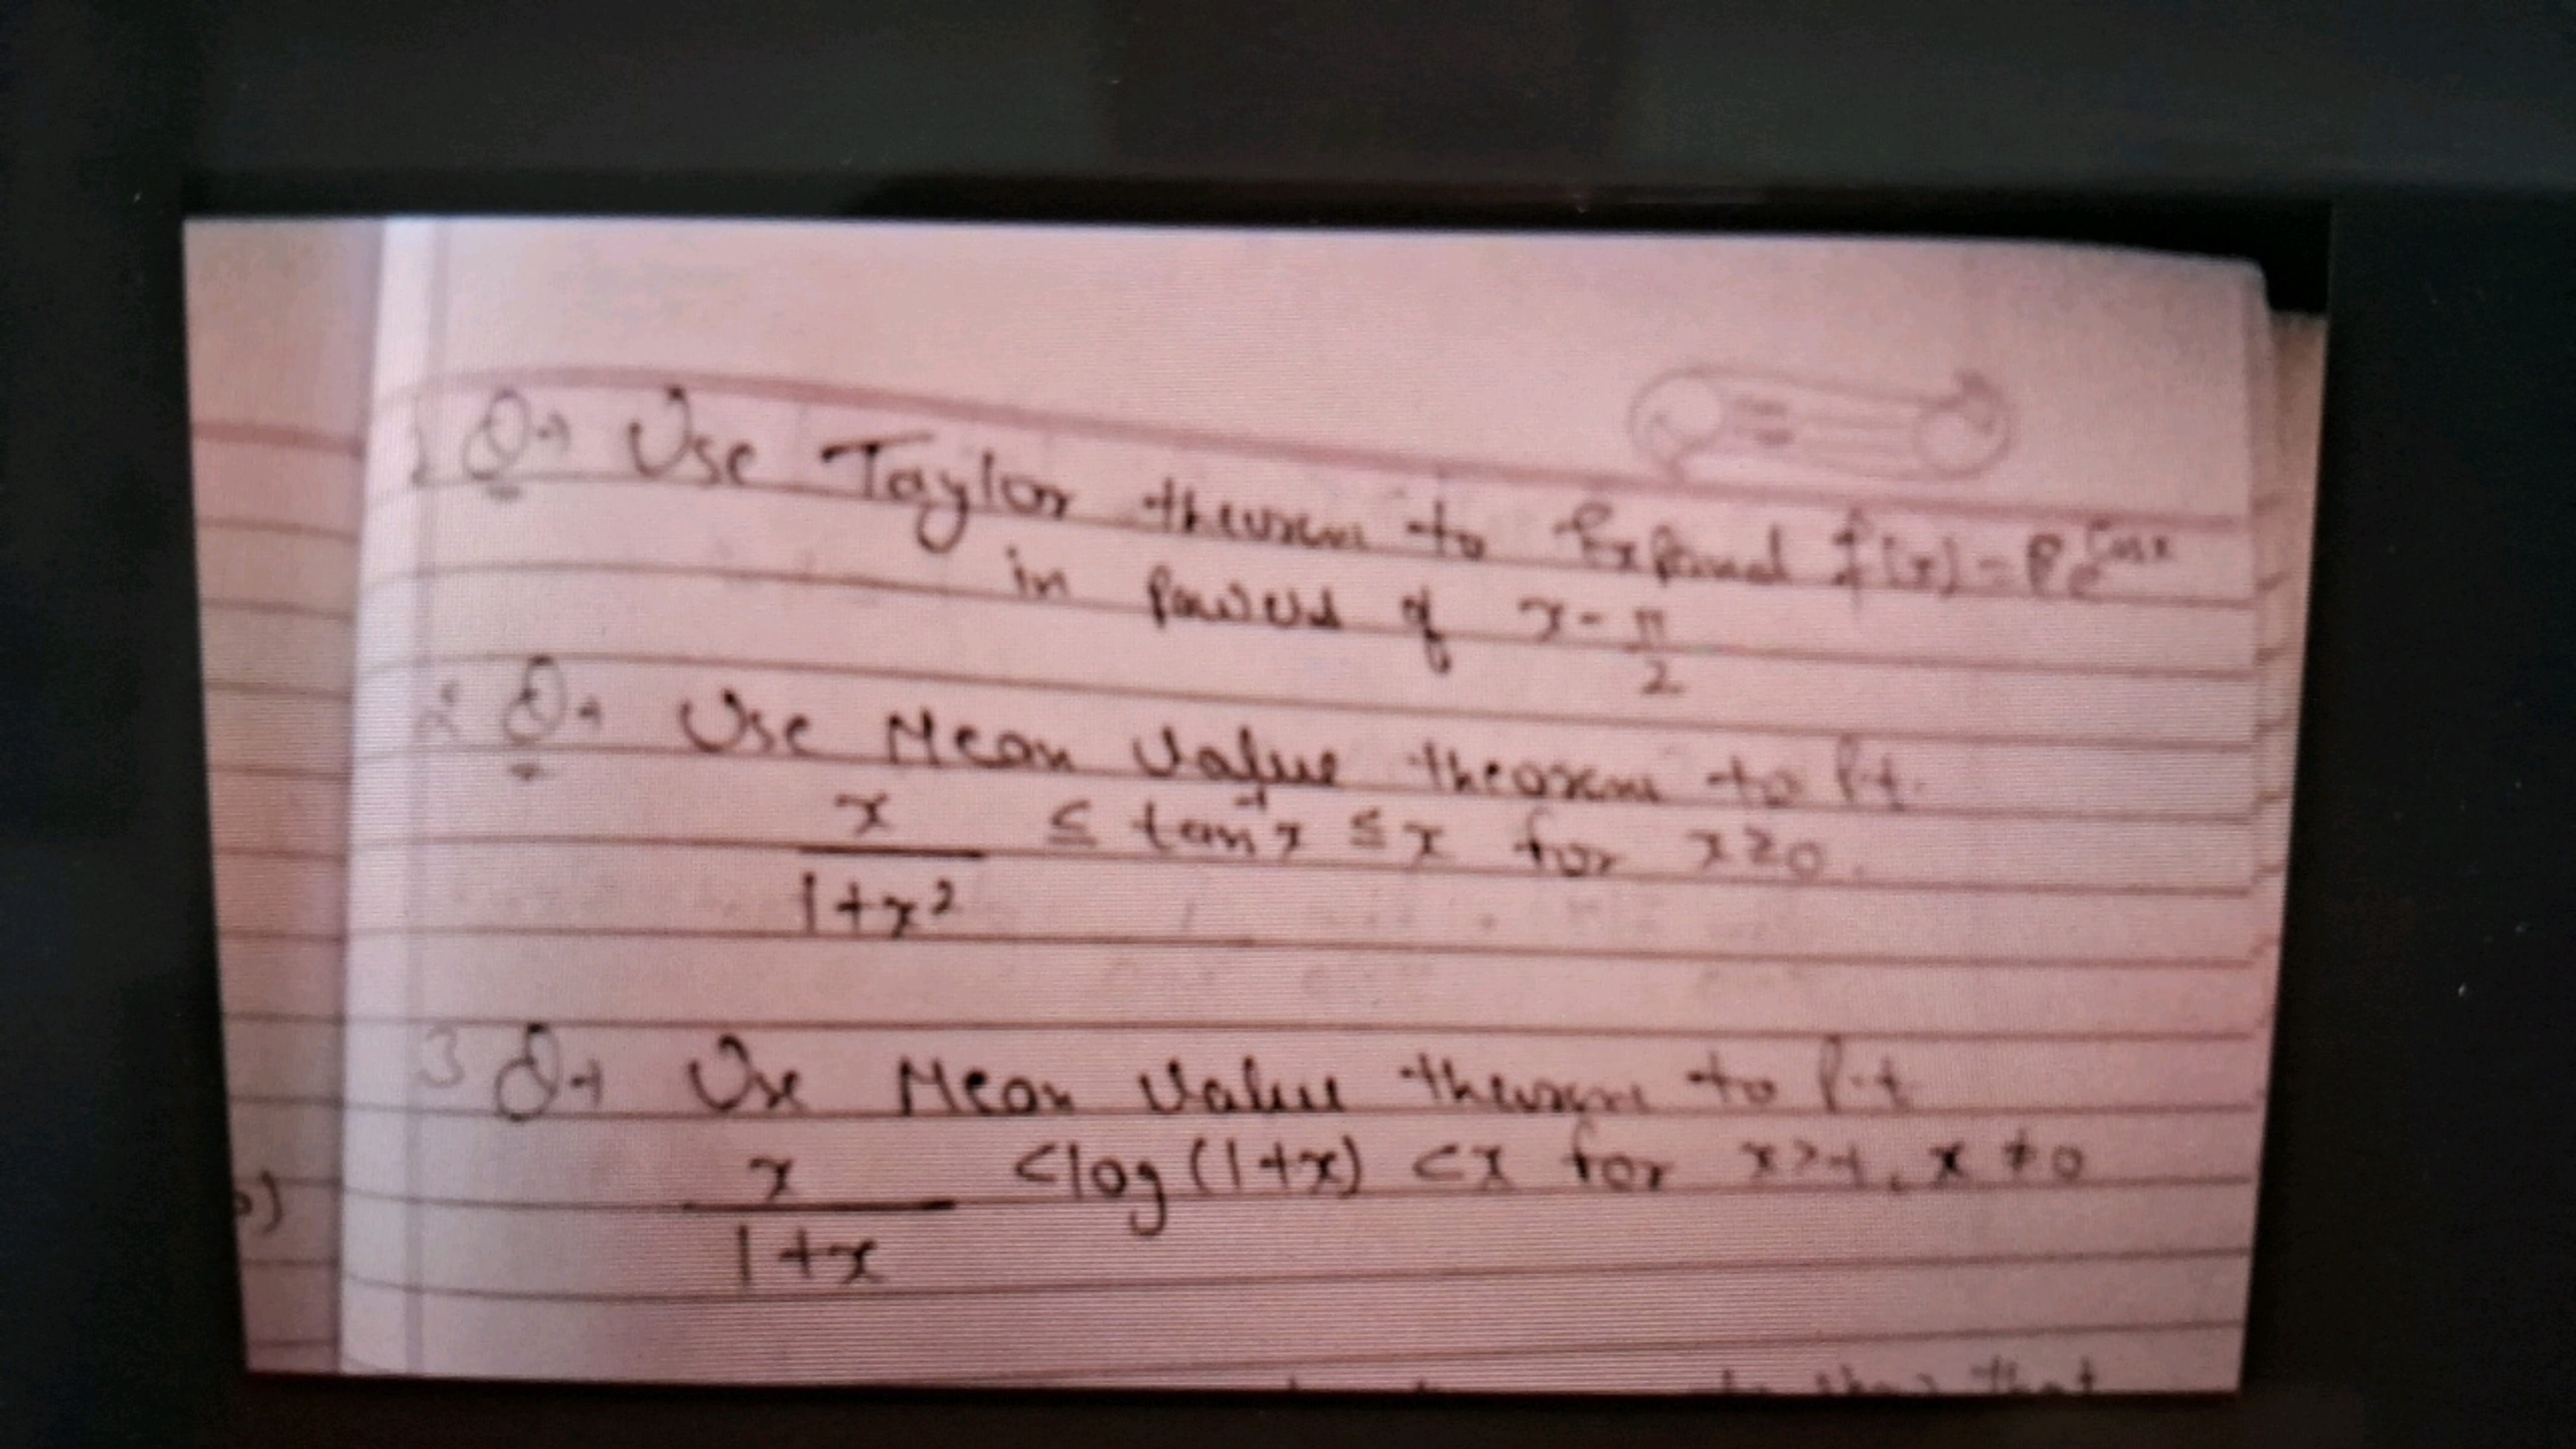 1 Q→ Use Taylor theorem to Expand f(x) = e^cosx
in Powers of x - π/2
2 Q→ Use Mean Value theorem to P.t.
x/1+x² ≤ tan⁻¹x ≤ x for x≥0.
3 Q→ Use Mean Value theorem to P.t
x/1+x <log(1+x) <x for x>-1, x≠0
o)
that